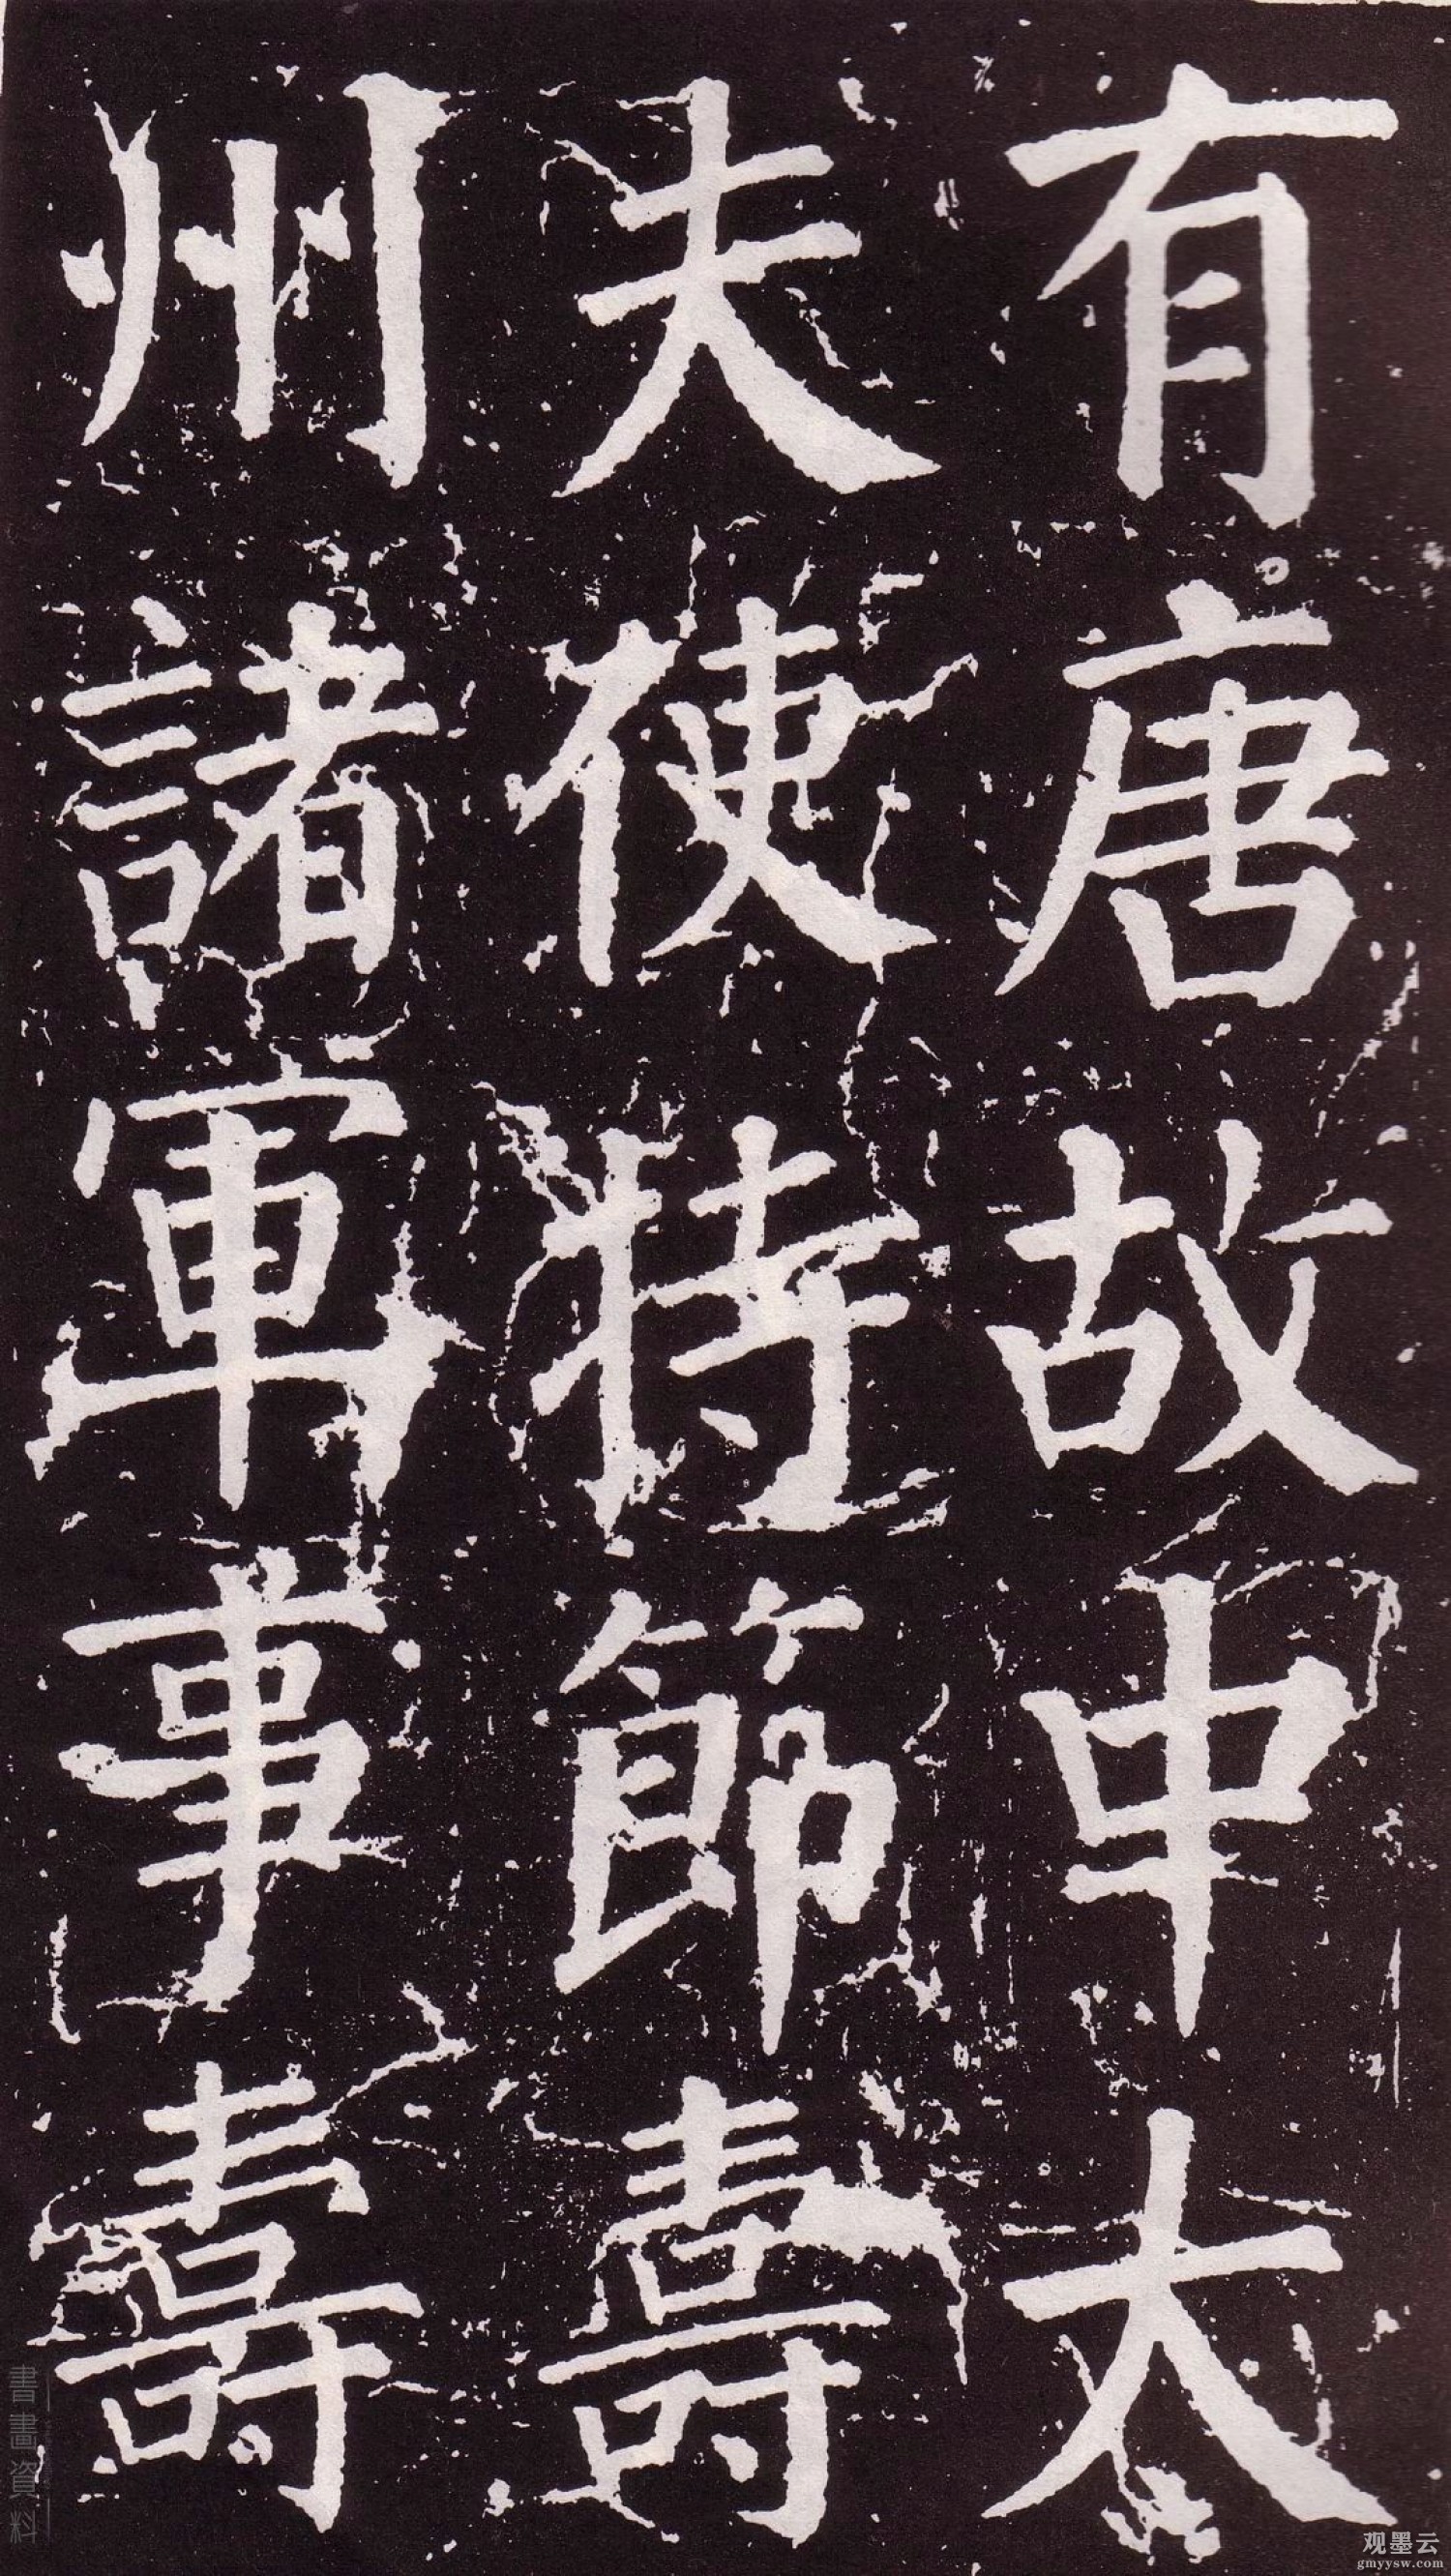 有唐故中大
夫使持節壽
州諸軍事壽
書畫資料
观墨云
gmyysw.com